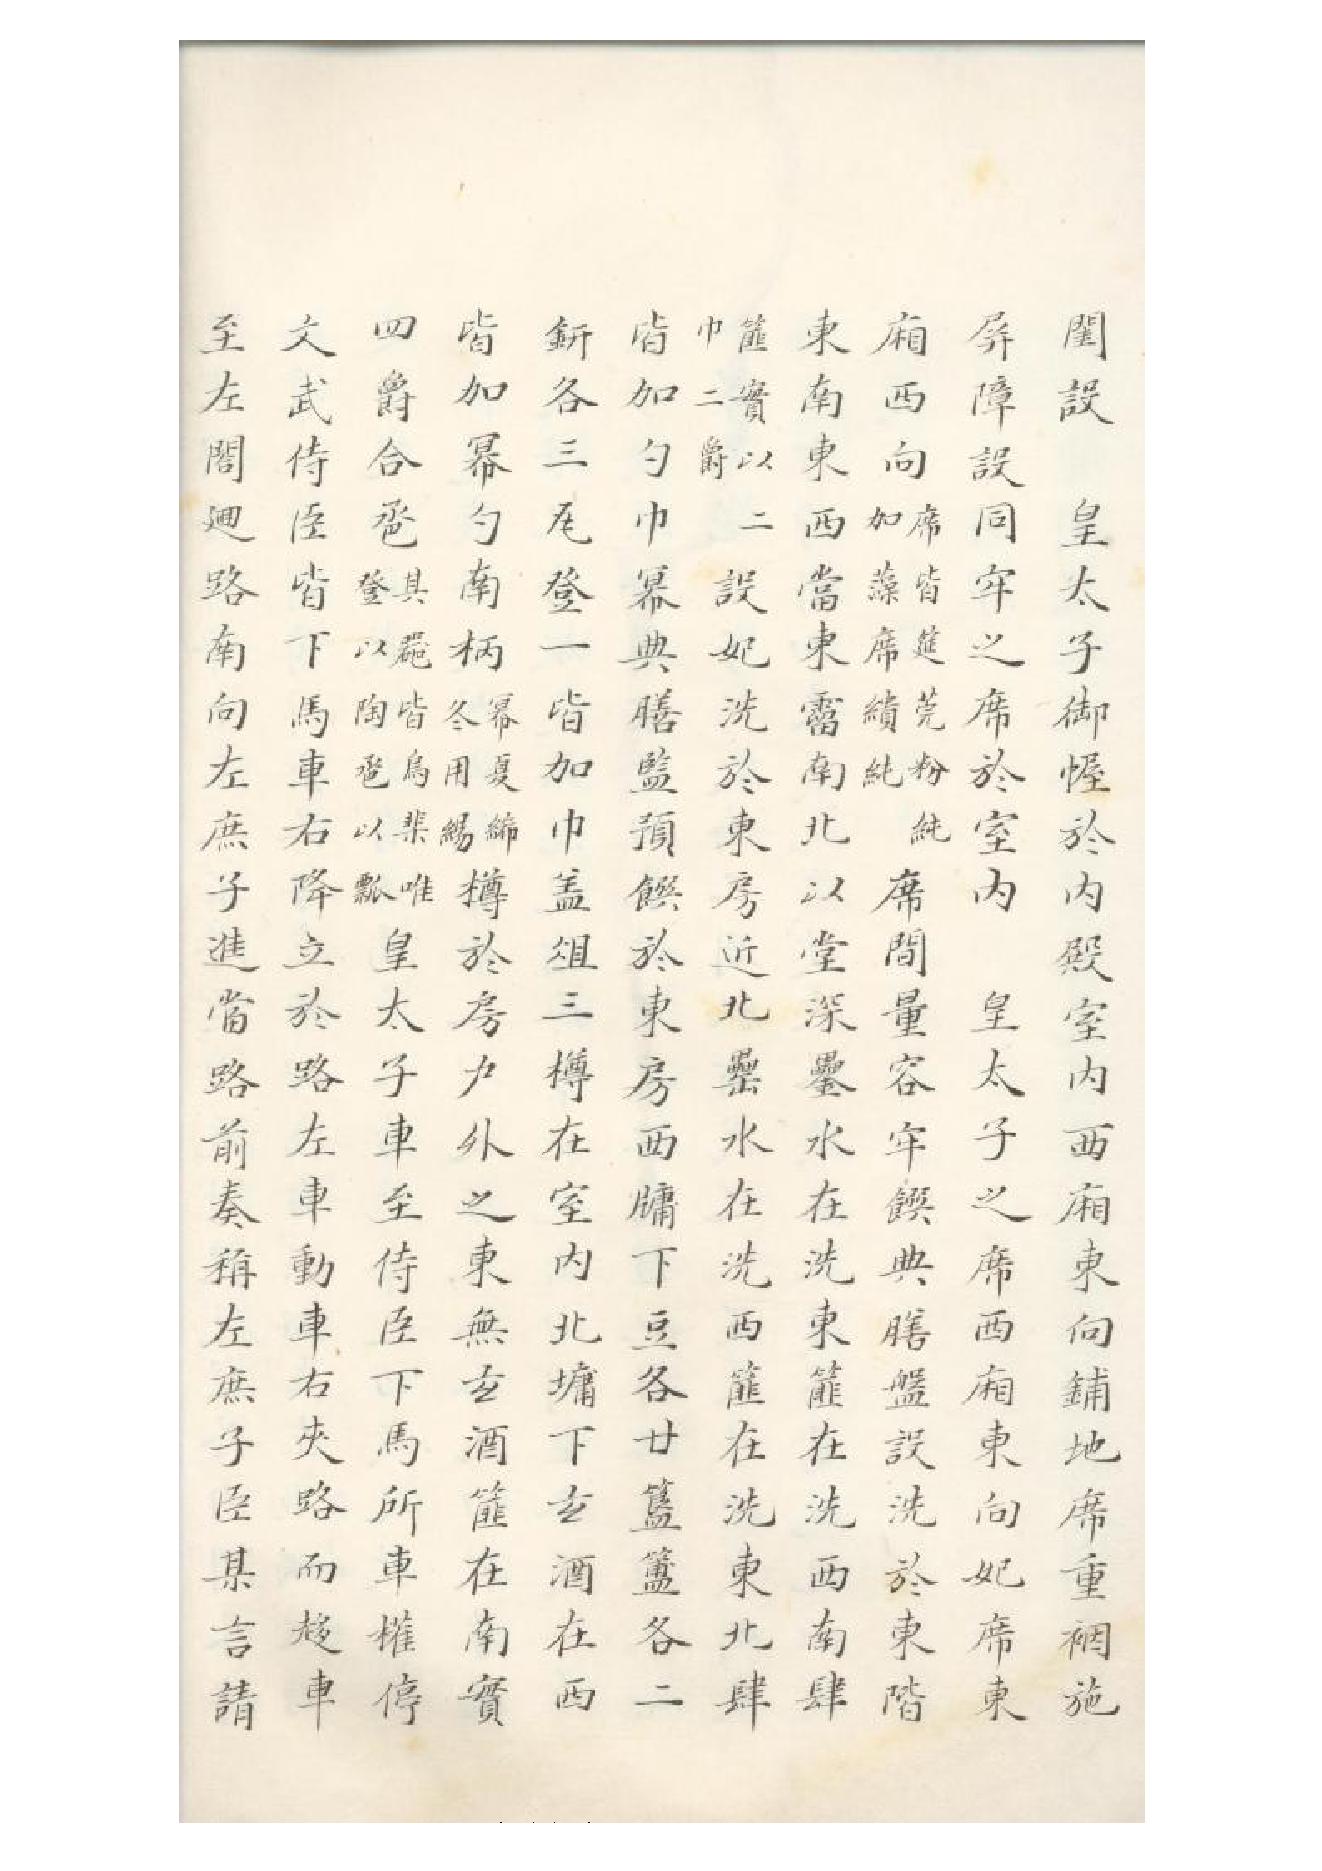 閨設　皇太子御幄於內殿室內西廂東向鋪地席重裀施
屏障設同牢之席於室內　皇太子之席西廂東向妃席東
廂西向席皆莚莞粉純加藻席繢純席間量容牢饌典膳盤設洗於東階
東南東西當東霤南北以堂深罍水在洗東篚在洗西南肆
篚實以二巾二爵設妃洗於東房近北罍水在洗西篚在洗東北肆
皆加勺巾冪典膳監預饌於東房西牖下豆各廿簋簠各二
鈃各三尾登一皆加巾盖俎三樽在室內北墉下玄酒在西
皆加冪勺南柄冪夏綌冬用緆樽於房戶外之東無玄酒篚在南實
四爵合巹其器皆烏柒唯登以陶巹以瓢皇太子車至侍臣下馬所車權停
文武侍臣皆下馬車右降立於路左車動車右夾路而趍車
至左閤廻路南向左庶子進當路前奏稱左庶子臣某言請